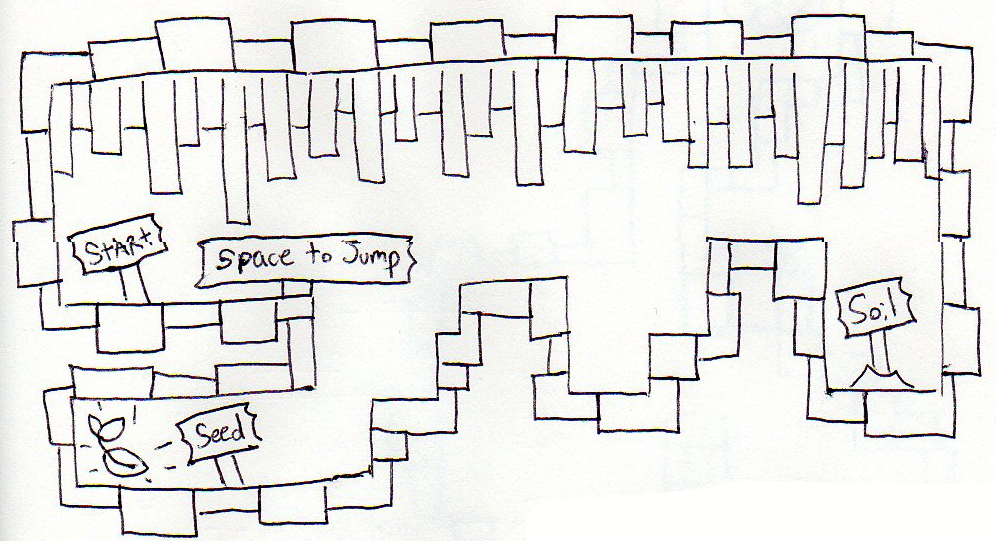 START
Space to Jump
Soil
Seed